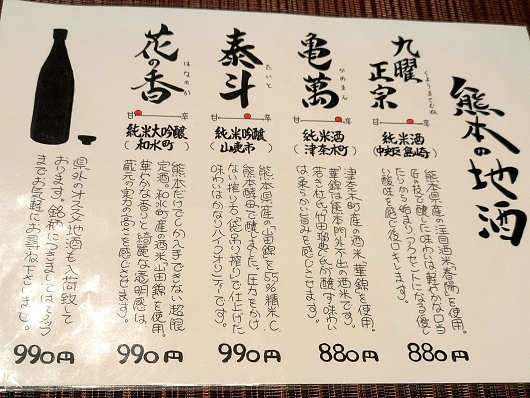 熊本の地酒
九曜正宗
くようまさむね
甘 辛
純米酒
(中央区島崎)
熊本県産の注目酒米「春陽」を使用。
匠の技で醸した味わいは軽やかな口当
たりから始まり、アクセントになる優し
い酸味を感じ後口キレします。
880円
亀萬
かめまん
甘 辛
純米酒
(津奈木町)
津奈木町産の酒米「華錦」を使用。
「華錦」は熊本門外不出の酒米です。
若き杜氏「竹田瑠典」氏が醸す味わい
は柔らかい旨みを感じさせます。
880円
泰斗
たいと
甘 辛
純米吟醸
(山鹿市)
熊本県産の「山田錦」を55%精米し
熊本酵母で醸しました。圧力をかけ
ない搾り方(袋吊り搾り)で仕上げた
味わいはかなりハイクオリティーです。
990円
花の香
はなのか
甘 辛
純米大吟醸
(和水町)
熊本だけでしか入手できない超限
定酒。和水町産の酒米「山田錦」を使用。
華やかな香りと綺麗な透明感は
蔵元の実力の高さを感じさせます。
990円
県外のオススメ地酒も入荷致して
おります。銘柄につきましてはスタッフ
までお気軽にお尋ね下さいませ。
990円